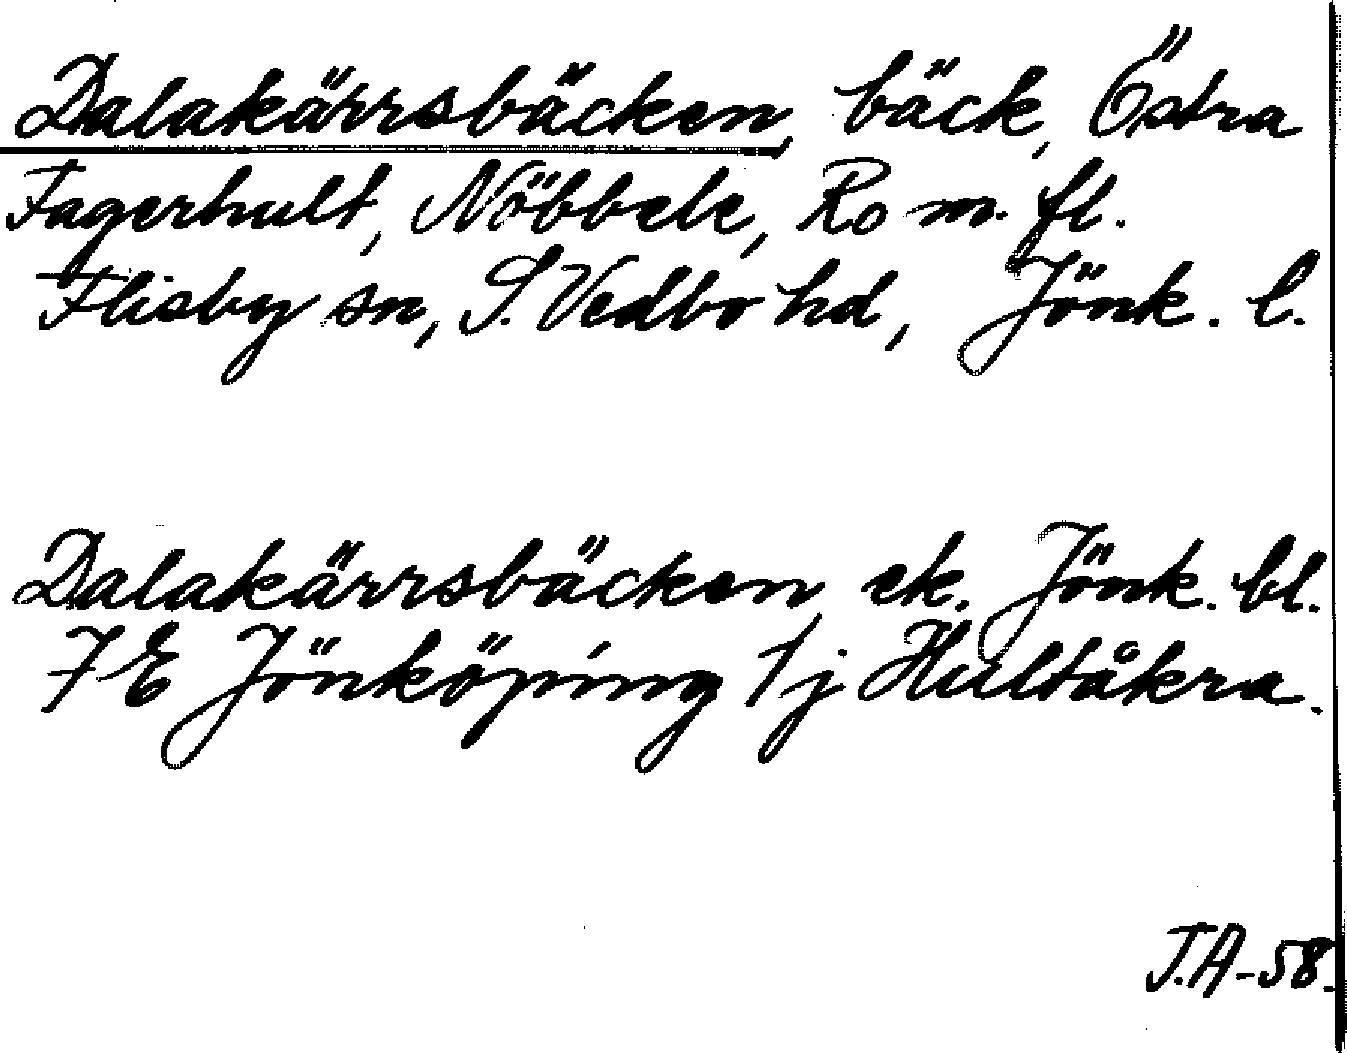 Dalakärrsbäcken, bäck, Östra
Fagerhult, Nöbbele, Ro m. fl.
Flisby sn, S. Vedbo hd, Jönk. l.
Dalakärrsbäcken, ek. Jönk. bl.
7E Jönköping 1j Hultåkra.
J.A-58.